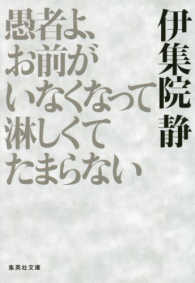 伊集院 静
愚者よ、
お前が
いなくなって
淋しくて
たまらない
集英社文庫